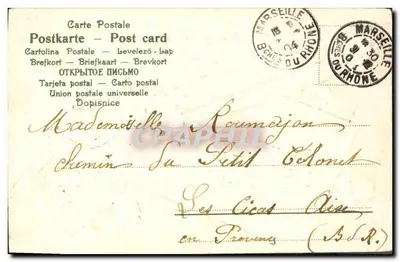 Carte Postale
Postkarte – Post card
Cartolina Postale – Levelező-Lap
Brefkort – Briefkaart – Brevkort
ОТКРЫТОЕ ПИСЬМО
Tarjeta postal – Carto postal
Union postale universelle
Dopisnice
MARSEILLE
04
BCHES DU RHONE
MARSEILLE
30
BCHES DU RHONE
Mademoiselle Roumajon
chemin du Petit Tolonet
Les Cicas Aix
en Provence (B d R.)